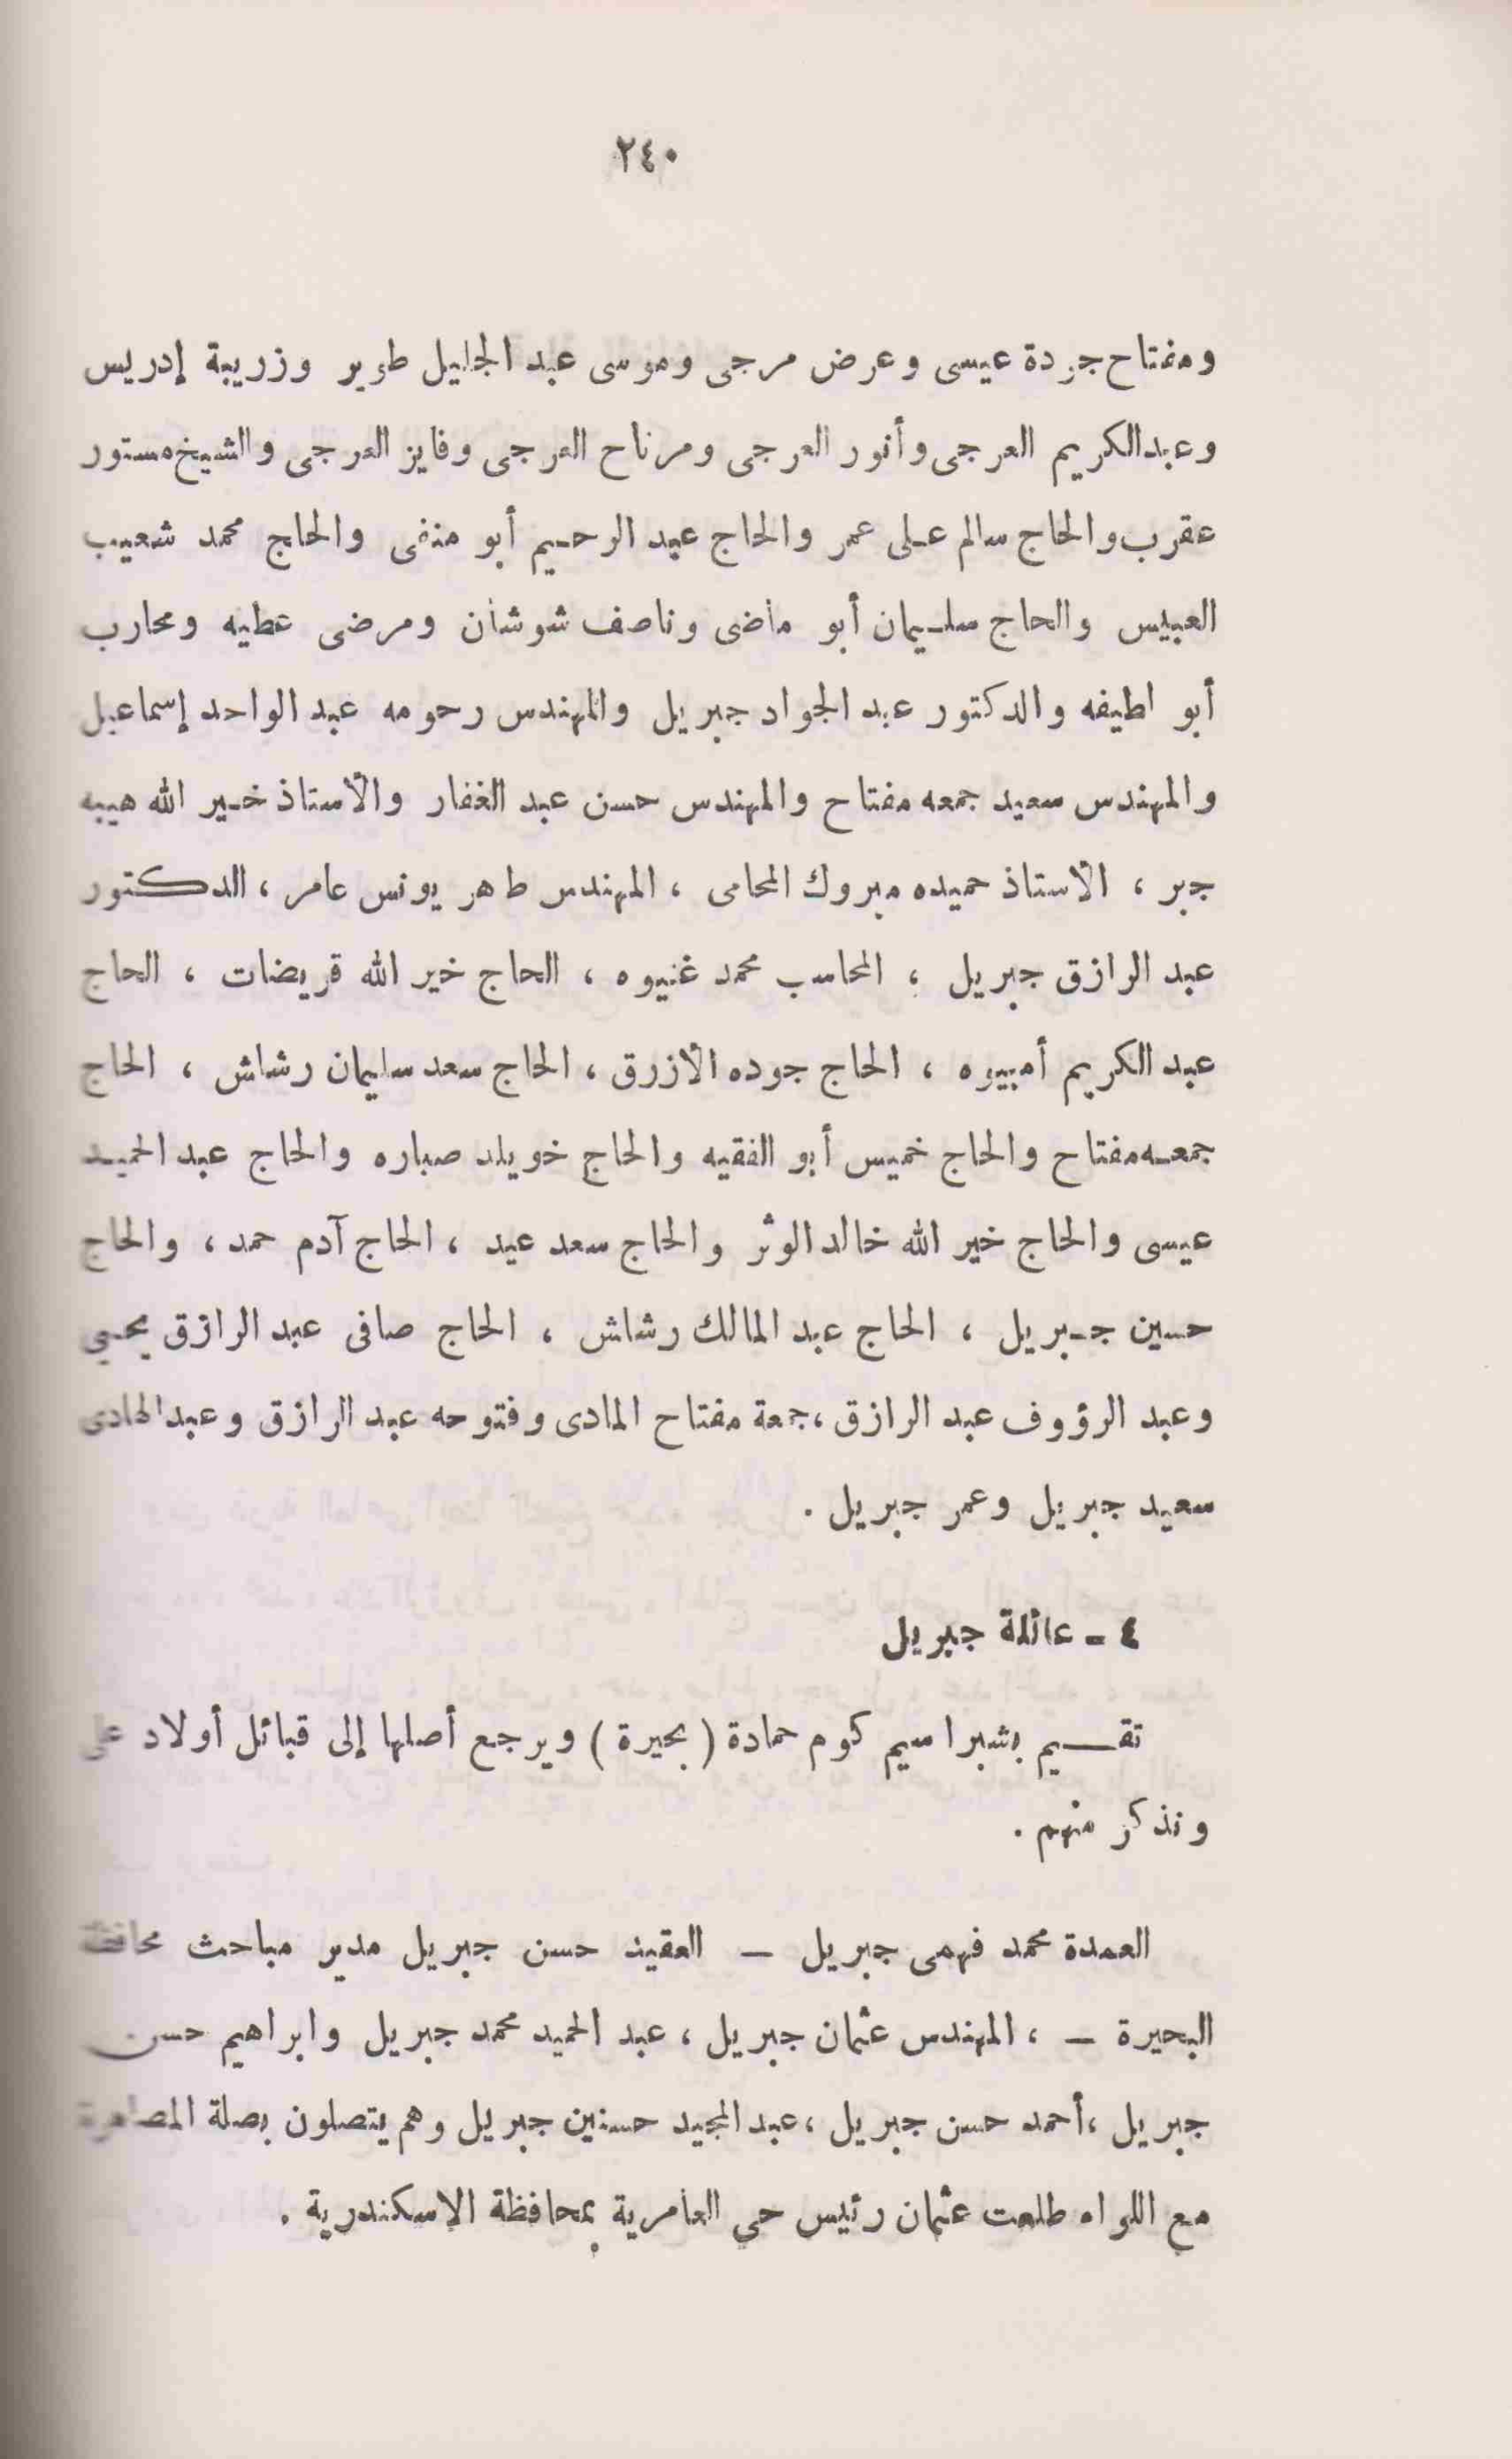 ٢٤٠
ومفتاح جودة عيسى وعوض مرجى وموسى عبد الجليل طوير وزريبة إدريس
وعبد الكريم العرجى وأنور العرجى ومرتاح العرجى وفايز العرجى والشيخ مستور
عقرب والحاج سالم على عمر والحاج عبد الرحيم أبو منفى والحاج محمد شعيب
العبيس والحاج سليمان أبو ماضى وناصف شوشان ومرضى عطيه ومحارب
أبو اطيفه والدكتور عبد الجواد جبريل والمهندس رحومه عبد الواحد إسماعيل
والمهندس سعيد جمعه مفتاح والمهندس حسن عبد الغفار والأستاذ خير الله هيبه
جبر ، الأستاذ حميده مبروك المحامى ، المهندس طاهر يونس عامر ، الدكتور
عبد الرازق جبريل ، المحاسب محمد غنيوه ، الحاج خير الله قريضات ، الحاج
عبد الكريم أمبيوه ، الحاج جوده الأزرق ، الحاج سعد سليمان رشاش ، الحاج
جمعه مفتاح والحاج خميس أبو الفقيه والحاج خويلد صباره والحاج عبد الحميد
عيسى والحاج خير الله خالد الوثر والحاج سعد عيد ، الحاج آدم حمد ، والحاج
حسين جبريل ، الحاج عبد المالك رشاش ، الحاج صافى عبد الرازق يحيي
وعبد الرؤوف عبد الرازق ، جمعة مفتاح المادى وفتوحه عبد الرازق وعبد الهادى
سعيد جبريل وعمر جبريل .
٤ - عائلة جبريل
تقيم بشبرا سيم كوم حمادة ( بحيرة ) ويرجع أصلها إلى قبائل أولاد على
ونذكر منهم .
العمدة محمد فهمى جبريل – العقيد حسن جبريل مدير مباحث محافظة
البحيرة – ، المهندس عثمان جبريل ، عبد الحميد محمد جبريل وابراهيم حسن
جبريل ، أحمد حسن جبريل ، عبد المجيد حسنين جبريل وهم يتصلون بصلة المصاهرة
مع اللواء طلعت عثمان رئيس حي العامرية بمحافظة الإسكندرية .